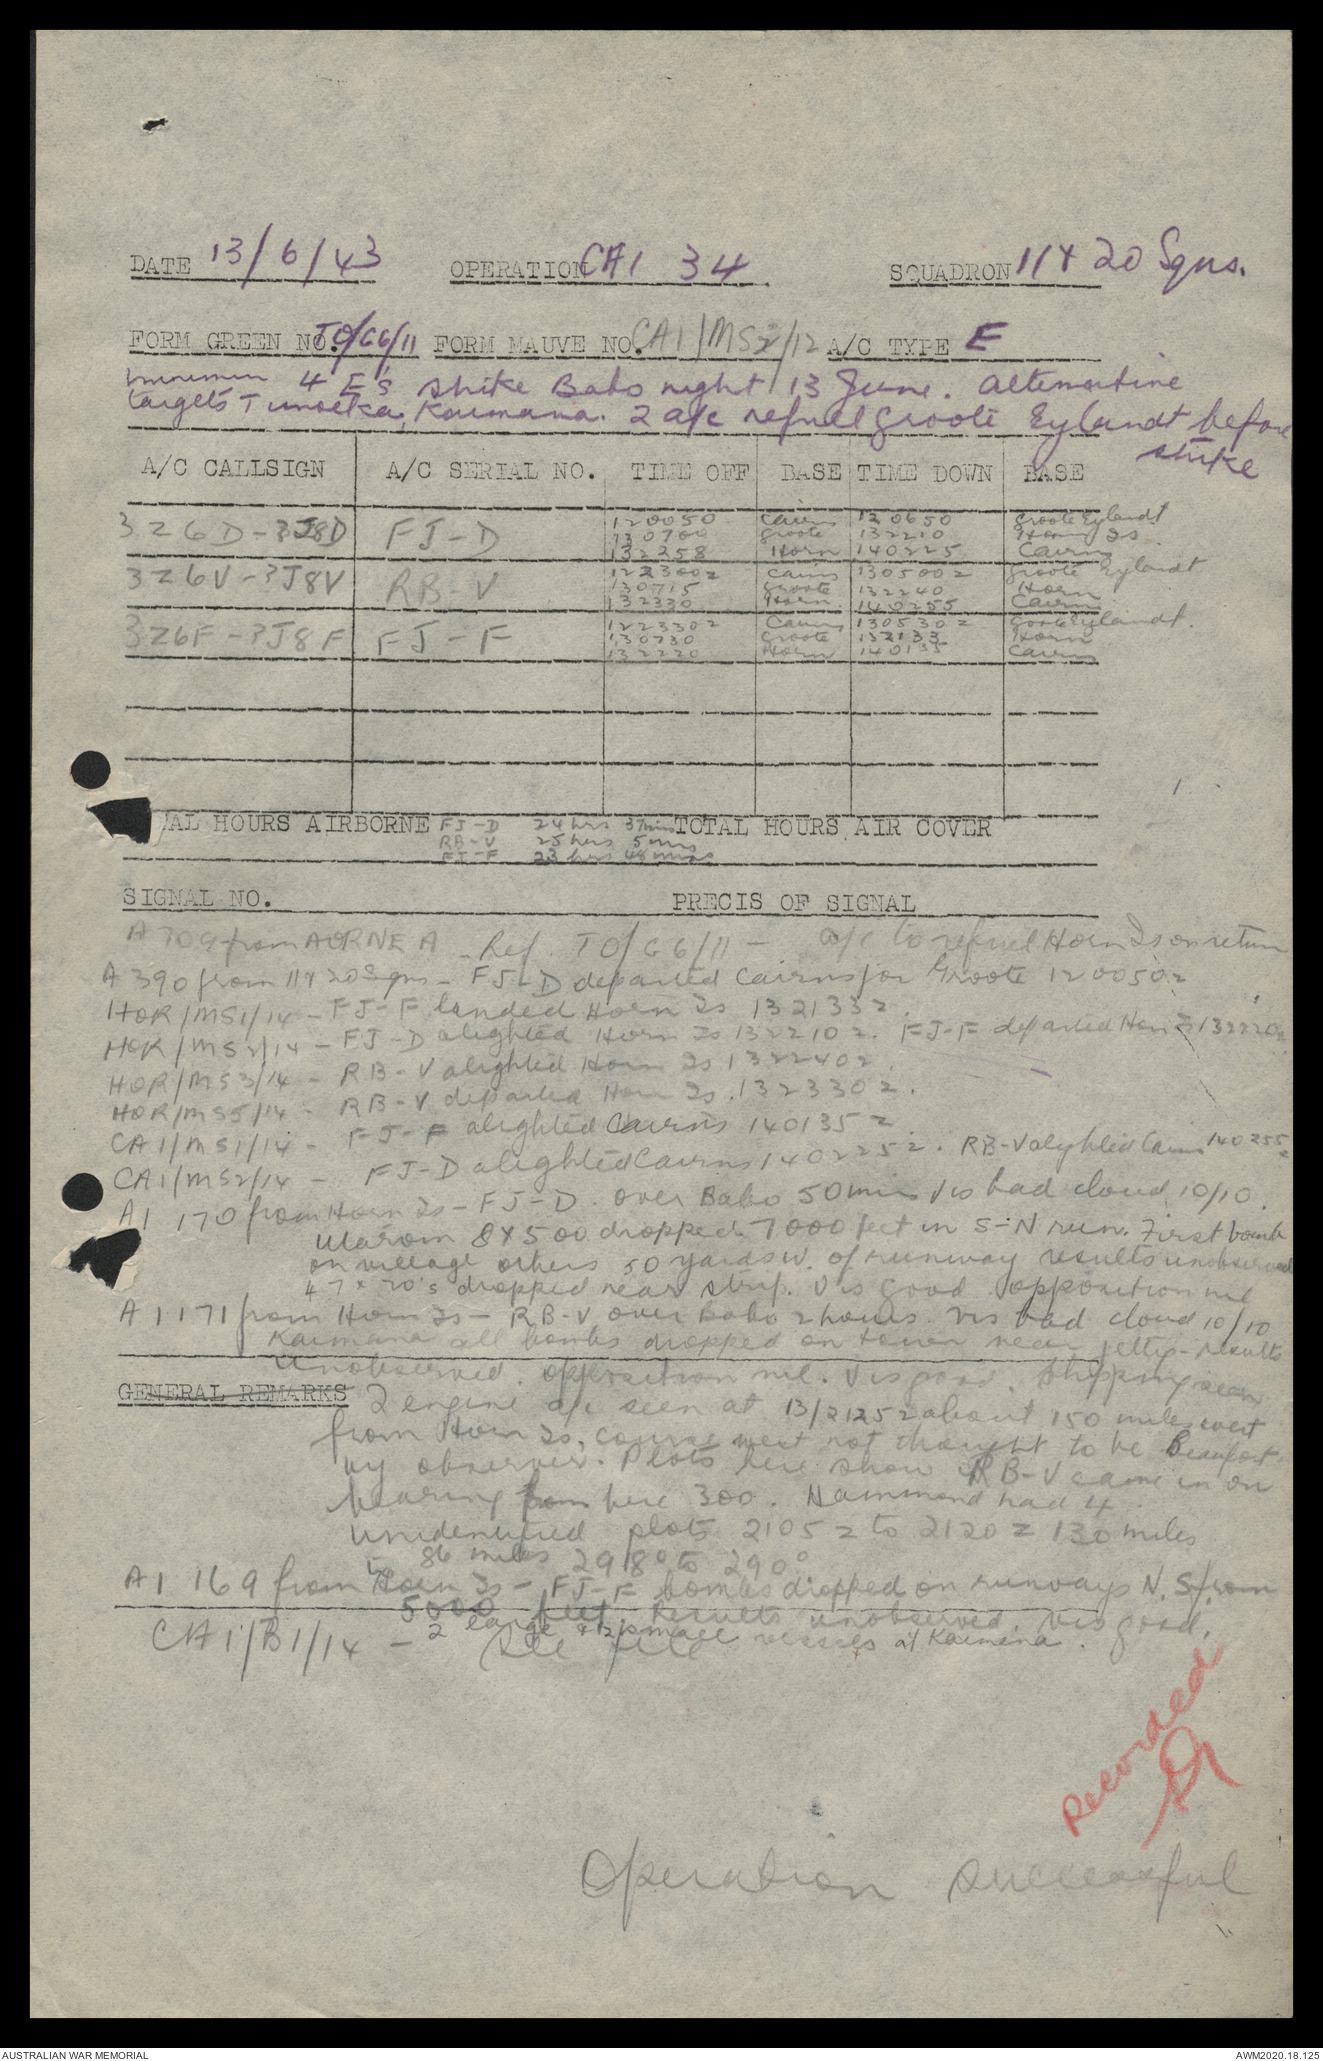 DATE 13/6/43 OPERATION CA1 34 SQUADRON 11 & 20 Sqns.
FORM GREEN NO. TO/G6/11 FORM MAUVE NO. CA1/MS2/12 A/C TYPE E
4 E's strike Babo night 13 June. alternative
targets Timoeka, Kaimana. 2 a/c refuel Groote Eylandt before
strike
A/C CALLSIGN A/C SERIAL NO. TIME OFF BASE TIME DOWN BASE
3Z6D-3J8D FJ-D 120050 Cairns 120650 Groote Eylandt
130700 Groote 132210 Horn Is
132258 Horn 140225 Cairns
3Z6V-3J8V RB-V 122300z Cairns 130500z Groote Eylandt
130715 Groote 132240 Horn
132330 Horn 140255 Cairns
3Z6F-3J8F FJ-F 122330z Cairns 130530z Groote Eylandt.
130730 Groote 132133 Horn
132220 Horn 140135 Cairns
AL HOURS AIRBORNE FJ-D 24 hrs 37 mins TOTAL HOURS AIR COVER
RB-V 25 hrs 5 mins
FJ-F 23 hrs 48 mins
SIGNAL NO. PRECIS OF SIGNAL
A 709 from AORNE A - Ref. TO/G6/11 - a/c to refuel Horn Is on return
A 390 from 11 & 20 Sqns - FJ-D departed Cairns for Groote 120050z
HOR/MS1/14 - FJ-F landed Horn Is 132133z.
HOR/MS2/14 - FJ-D alighted Horn Is 132210z. FJ-F departed Horn Is 132220z
HOR/MS3/14 - RB-V alighted Horn Is 132240z.
HOR/MS5/14 - RB-V departed Horn Is. 132330z.
CA1/MS1/14 - FJ-F alighted Cairns 140135z
CA1/MS2/14 - FJ-D alighted Cairns 140225z. RB-V alighted Cairns 140255z
A1 170 from Horn Is - FJ-D. over Babo 50 mins vis bad cloud 10/10.
Utarom 8x500 dropped 7000 feet in S-N run. First bomb
on village others 50 yards W. of runway results unobserved
47 x 20's dropped near strip. Vis good opposition nil
A1 171 from Horn Is - RB-V over Babo 2 hours. Vis bad cloud 10/10
Kaimana all bombs dropped on town near jetty - results
unobserved. opposition nil. Vis good. Shipping seen
GENERAL REMARKS
2 engine a/c seen at 13/2125z about 150 miles west
from Horn Is, course west not thought to be Beaufort
by observer. Plots here show RB-V came in on
bearing from here 300. Hammond had 4
unidentified plots 2105z to 2120z 130 miles
to 86 miles 298° to 290°
A1 169 from Horn Is - FJ-F bombs dropped on runways N. S from
5000 feet. Results unobserved. vis good.
2 large & 12 small vessels at Kaimana.
CA1/B1/14 - See file
Recorded
Operation successful
AUSTRALIAN WAR MEMORIAL
AWM2020.18.125